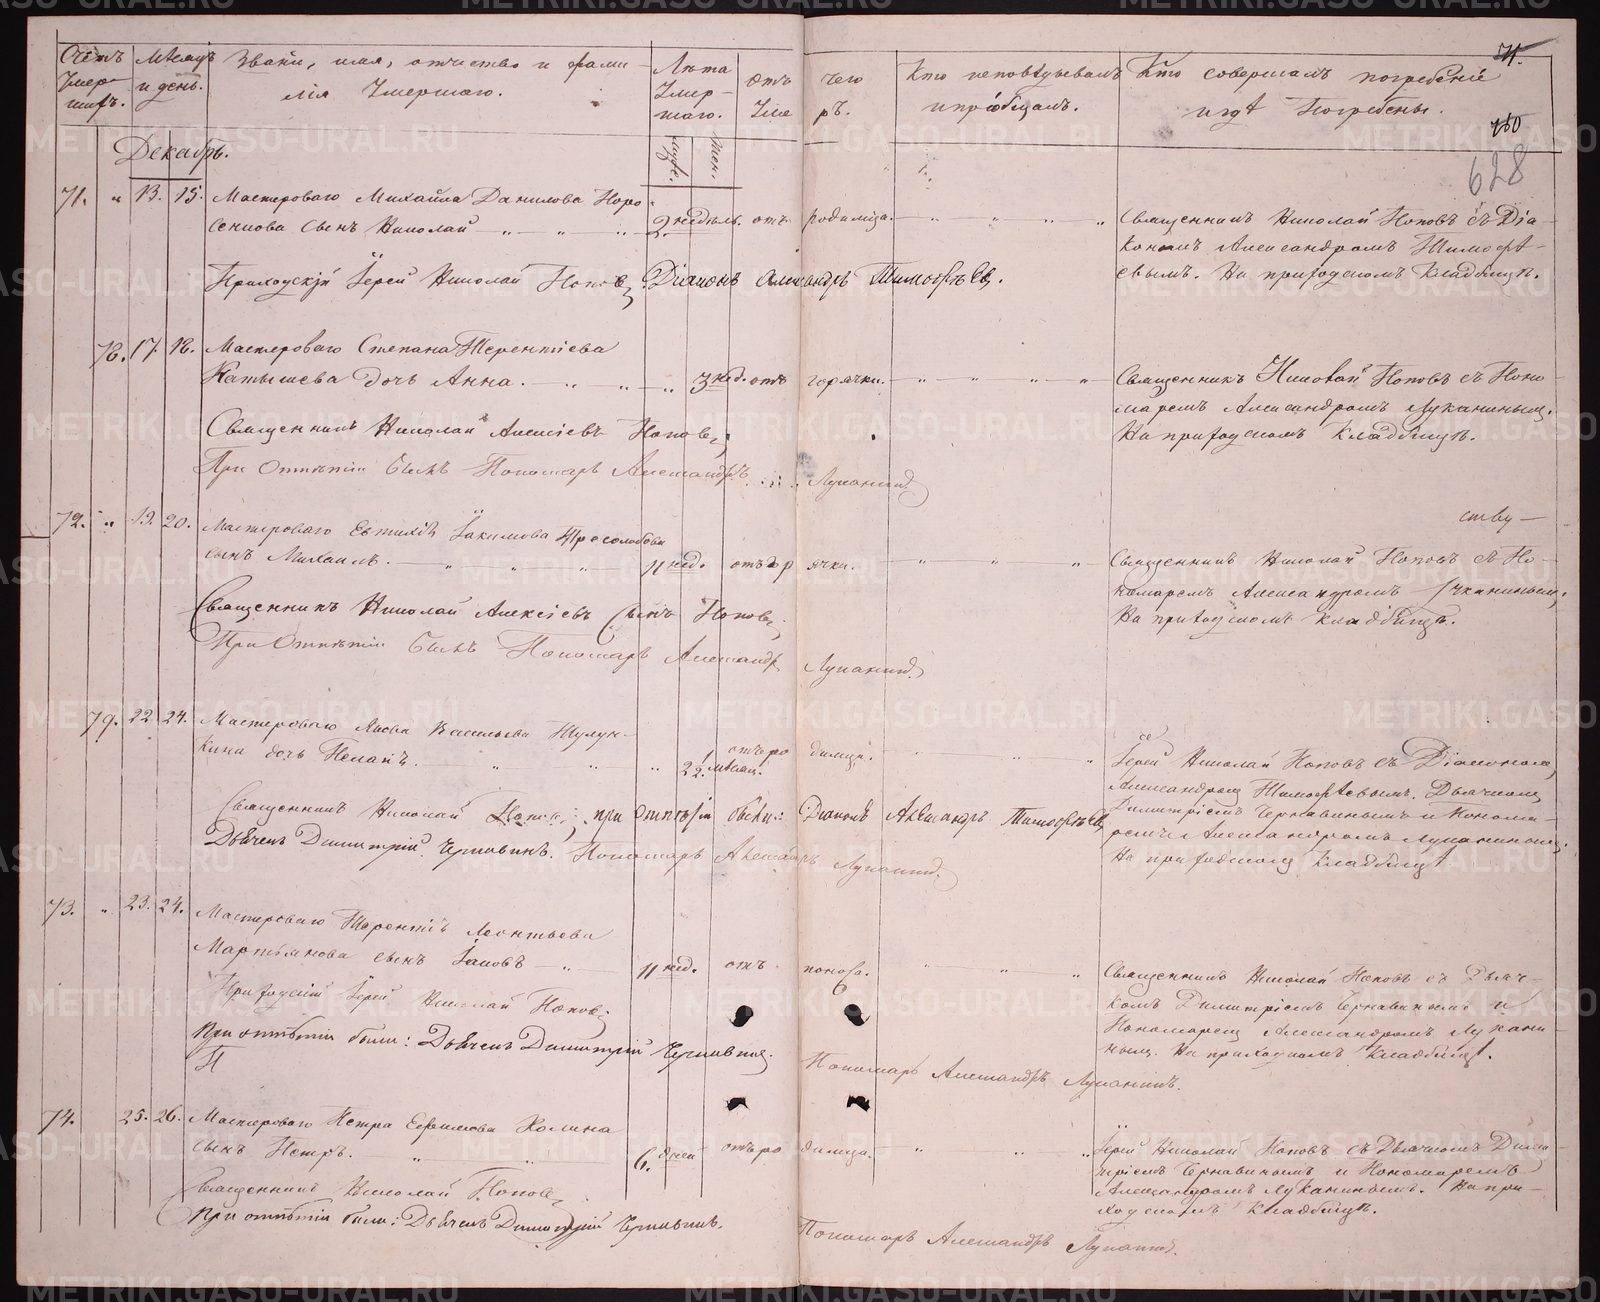 Счетъ Умершихъ.
Мѣсяцъ и день.
Званіе, имя, отчество и фамилія Умершаго.
Лѣта Умершаго.
Муже.
Жен.
Отъ чего Умеръ.
Кто исповѣдывалъ и пріобщалъ.
Кто совершалъ погребеніе и гдѣ Погребены.
628
Декабрь.
71. " 13. 15. Мастероваго Михайла Данилова
сынъ Николай 2. недѣль. отъ родимца.
Священникъ Николай Поповъ съ Діа-
кономъ Александромъ Тимофѣ-
евымъ. На приходскомъ кладбищѣ.
Приходскій Іерей Николай Поповъ, Діаконъ Александръ Тимофѣевъ.
78. 17. 18. Мастероваго Степана Терентіева
Катышева дочь Анна. 3 нед. отъ горячки.
Священникъ Николай Поповъ съ Поно-
маремъ Александромъ Луканинымъ.
На приходскомъ Кладбищѣ.
Священникъ Николай Алексіевъ Поповъ.
При Отпѣтіи былъ Пономарь Александръ Луканинъ
72. " 19. 20. Мастероваго Евтихія Іакимова
сынъ Михаилъ. 11 нед. отъ горячки.
Священникъ Николай Поповъ съ По-
номаремъ Александромъ Луканинымъ.
На приходскомъ кладбищѣ.
Священникъ Николай Алексіевъ Сынъ Поповъ
При Отпѣтіи былъ Пономарь Александръ Луканинъ.
79. 22. 24. Мастероваго Якова Васильева
дочь 2 1/2 мѣсяц. отъ родимца.
Іерей Николай Поповъ съ Діакономъ
Александромъ Тимофѣевымъ, Дьячкомъ
Димитріемъ Чернавинымъ и Понома-
ремъ Александромъ Луканинымъ.
На приходскомъ Кладбищѣ
Священникъ Николай Поповъ, при отпѣтіи были: Діаконъ Александръ Тимофѣевъ,
Дьячекъ Димитрій Чернавинъ. Пономарь Александръ Луканинъ.
73. " 23. 24. Мастероваго Терентія Леонтьева
Мартьянова сынъ Іаковъ 11 нед. отъ поноса.
Священникъ Николай Поповъ съ Дьяч-
комъ Димитріемъ Чернавинымъ и
Пономаремъ Александромъ Лукани-
нымъ. На приходскомъ Кладбищѣ.
Приходскій Іерей Николай Поповъ
При отпѣтіи были: Дьячекъ Димитрій Чернавинъ.
П
Пономарь Александръ Луканинъ.
74. 25. 26. Мастероваго Петра Ефимова
сынъ Петръ. 6. дней отъ родимца.
Іерей Николай Поповъ съ Дьячкомъ Дими-
тріемъ Чернавинымъ и Пономаремъ
Александромъ Луканинымъ. На при-
ходскомъ Кладбищѣ.
Священникъ Николай Поповъ
При отпѣтіи были: Дьячекъ Димитрій Чернавинъ.
Пономарь Александръ Луканинъ.
METRIKI.GASO-URAL.RU